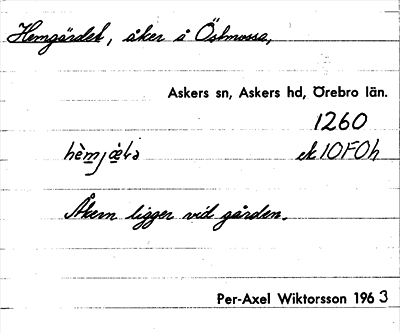 Hemgärdet, åker å Östmossa,
Askers sn, Askers hd, Örebro län.
1260
ek 10F0h
Åkern ligger vid gården.
Per-Axel Wiktorsson 1963